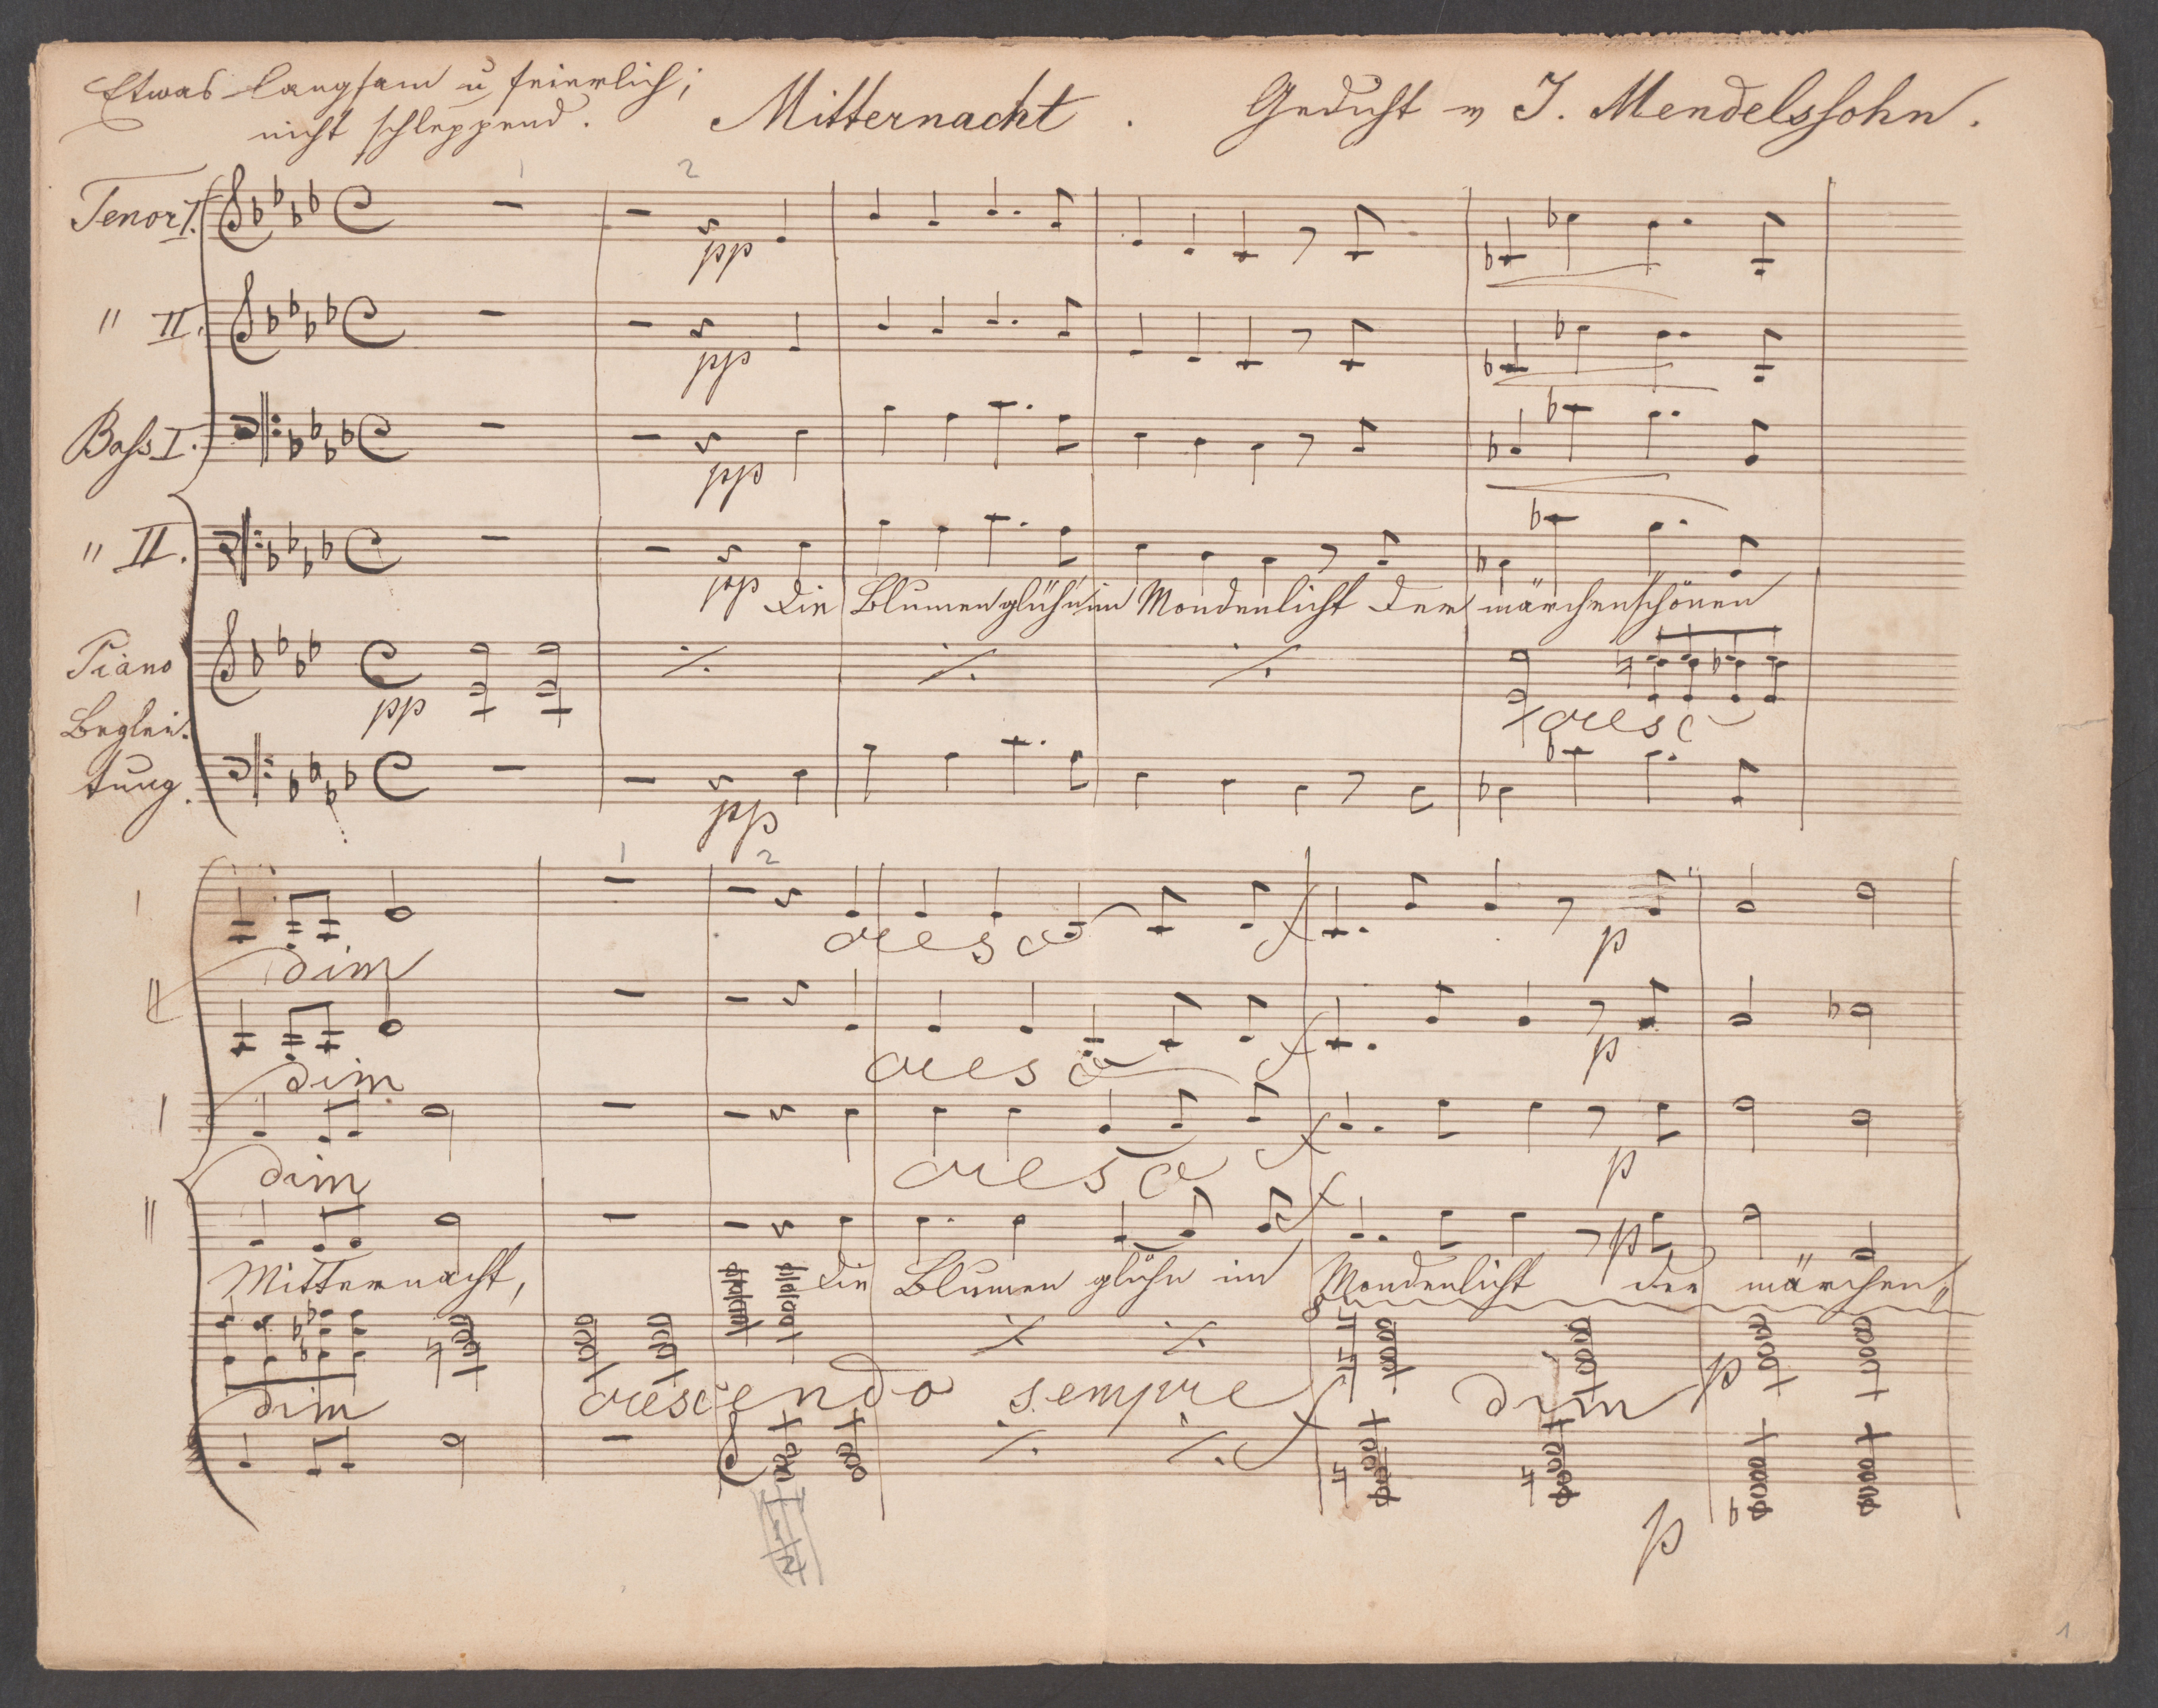 Etwas langsam u feierlich;
nicht schleppend.
Mitternacht.
Gedicht v J. Mendelssohn.
1 2
Tenor I.
pp
" II.
pp
Bass I.
pp
" II.
pp
Die Blumen glühn im Mondenlicht Der märchenschönen
Piano
Beglei-
tung.
pp
cresc
pp
1 2
I
cresc
f
p
dim
II
cresc
f
p
dim
I
cresc
f
p
dim
II
f
p
Mitternacht, Die Blumen glühn im Mondenlicht der märchen„
8
dim
crescendo sempre f dim p
f
p
1